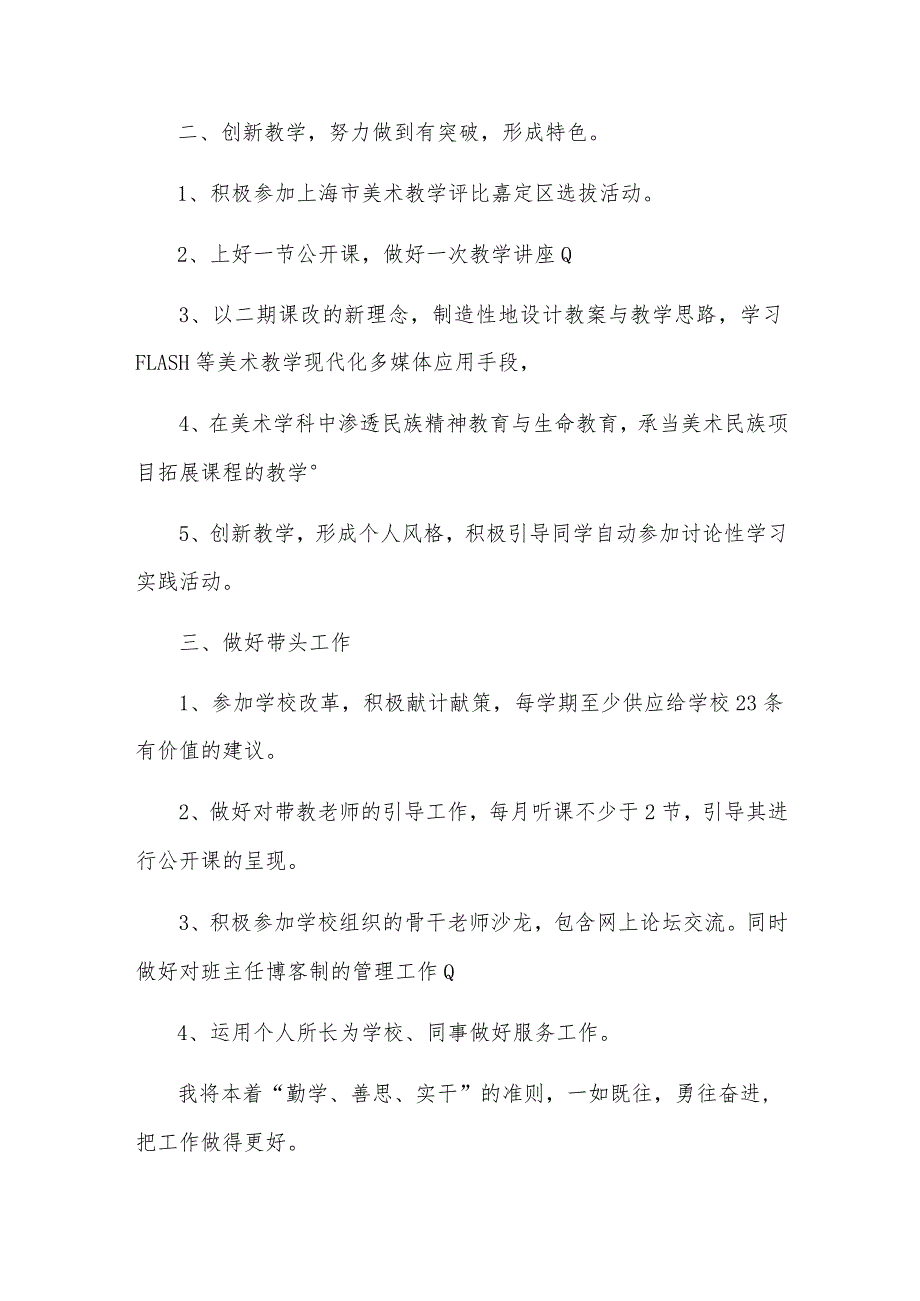 二、创新教学，努力做到有突破，形成特色。
1、积极参加上海市美术教学评比嘉定区选拔活动。
2、上好一节公开课，做好一次教学讲座Q
3、以二期课改的新理念，制造性地设计教案与教学思路，学习
FLASH等美术教学现代化多媒体应用手段，
4、在美术学科中渗透民族精神教育与生命教育，承当美术民族项
目拓展课程的教学°
5、创新教学，形成个人风格，积极引导同学自动参加讨论性学习
实践活动。
三、做好带头工作
1、参加学校改革，积极献计献策，每学期至少供应给学校23条
有价值的建议。
2、做好对带教老师的引导工作，每月听课不少于2节，引导其进
行公开课的呈现。
3、积极参加学校组织的骨干老师沙龙，包含网上论坛交流。同时
做好对班主任博客制的管理工作Q
4、运用个人所长为学校、同事做好服务工作。
我将本着“勤学、善思、实干”的准则，一如既往，勇往奋进，
把工作做得更好。